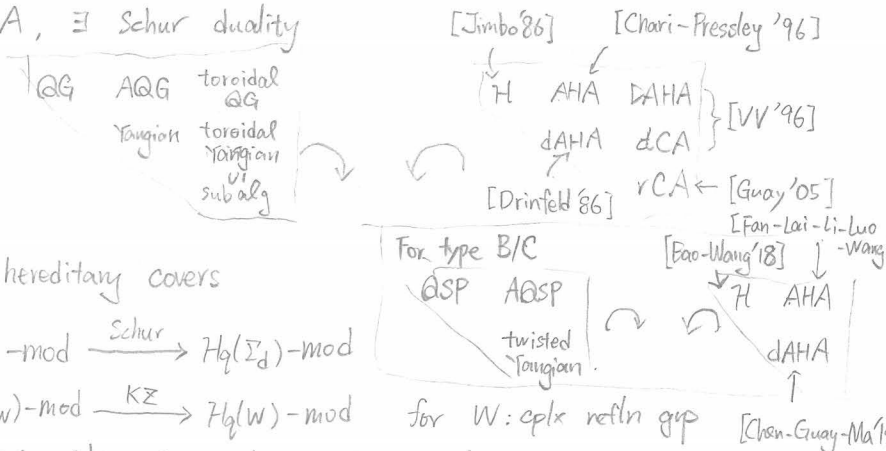 A, ∃ Schur duality
QG AQG toroidal QG
Yangian toroidal Yangian
∪I
subalg
[Jimbo'86] [Chari-Pressley '96]
H AHA DAHA
dAHA dCA
[VV'96]
[Drinfeld'86] rCA ← [Guay'05]
[Fan-Lai-Li-Luo
-Wang
For type B/C
[Bao-Wang'18]
QSP AQSP
H AHA
twisted
Yangian.
dAHA
hereditary covers
-mod Schur → Hq(Σd)-mod
)-mod KZ → Hq(W)-mod for W: cplx refln grp
[Chen-Guay-Ma'1